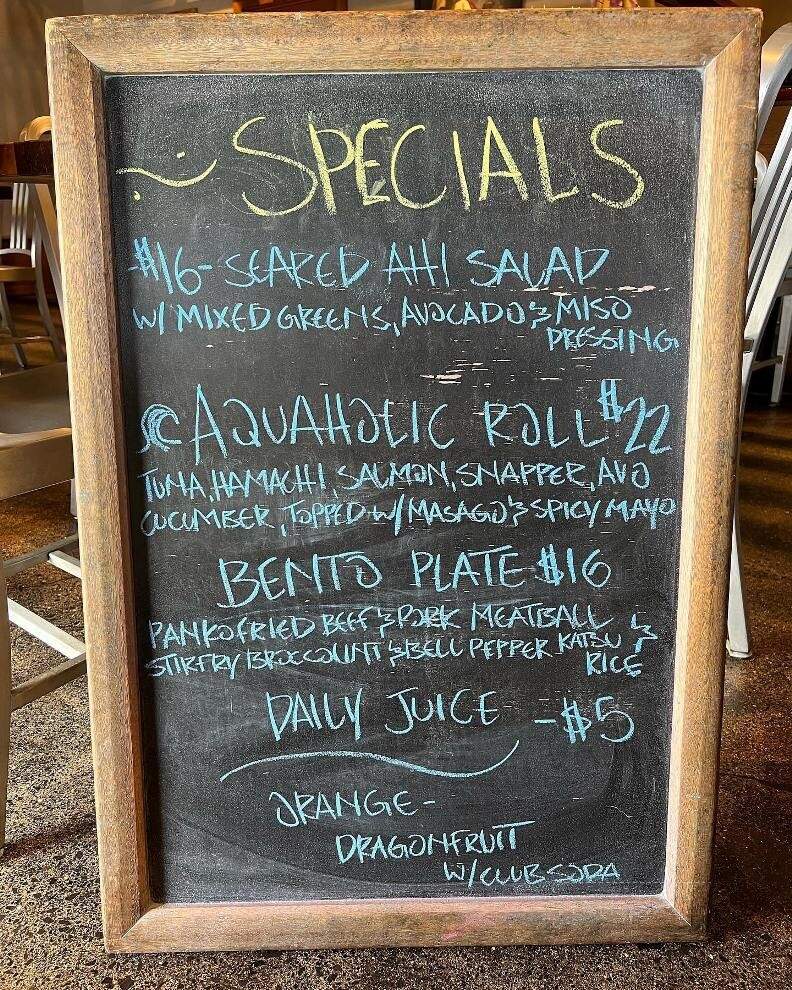 SPECIALS
-$16- SEARED AHI SALAD
W/ MIXED GREENS, AVOCADO & MISO
DRESSING
AQUAHOLIC ROLL $22
TUNA, HAMACHI, SALMON, SNAPPER, AVO
CUCUMBER, TOPPED W/ MASAGO & SPICY MAYO
BENTO PLATE $16
PANKO FRIED BEEF & PORK MEATBALL &
STIRFRY & BELL PEPPER KATSU
RICE
DAILY JUICE -$5
ORANGE-
DRAGONFRUIT
W/ CLUB SODA